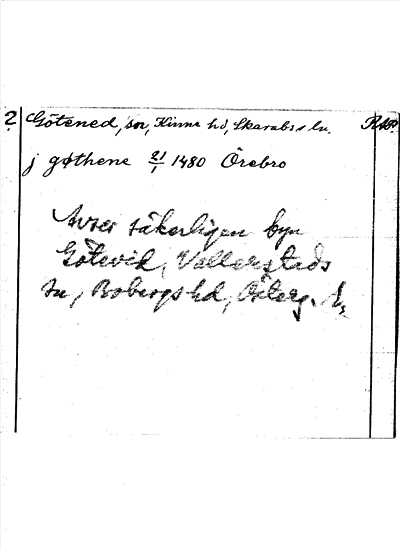 ? Götened, sn, Kinne hd, Skarabs ln. RAP
j gøthene 21/1 1480 Örebro
Avser säkerligen byn
Götevid, Vallerstads
sn, Bobergs hd, Österg. l.